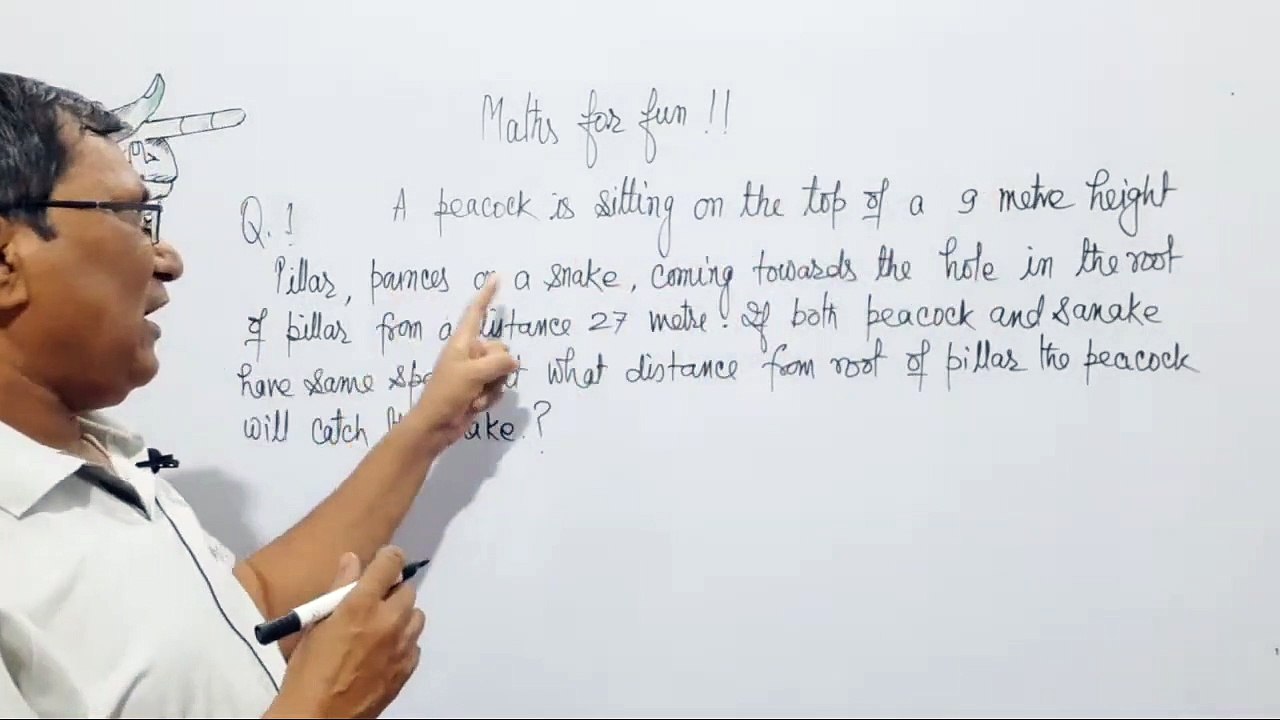 Maths for fun !!
Q.1 A peacock is sitting on the top of a 9 metre height
Pillar, paunces on a snake, coming towards the hole in the root
of pillar from a distance 27 metre. If both peacock and sanake
have same at what distance from root of pillar the peacock
will catch ?